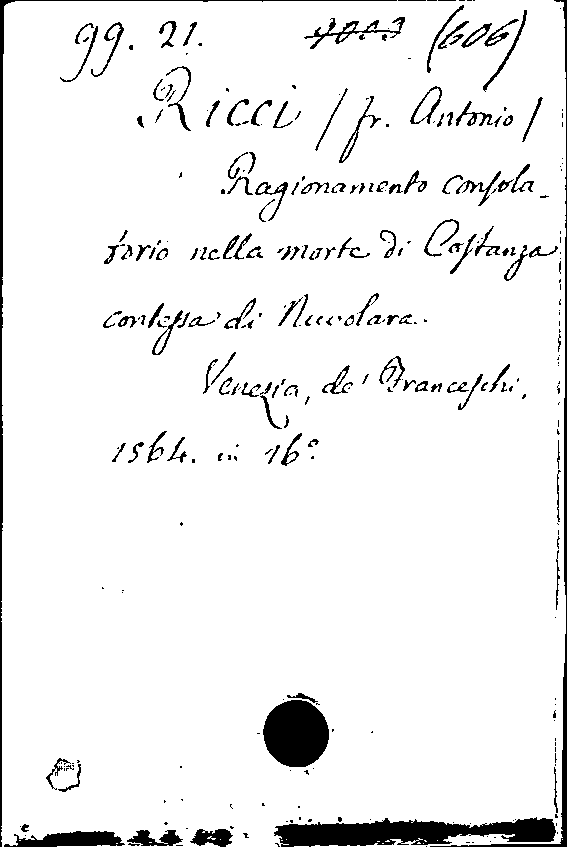 gg. 21. 9003 (606)
Ricci / fr. Antonio /
Ragionamento consola-
torio nella morte di Costanza
contessa di Nuvolara.
Venezia, de' Franceschi,
1564. in 16°.